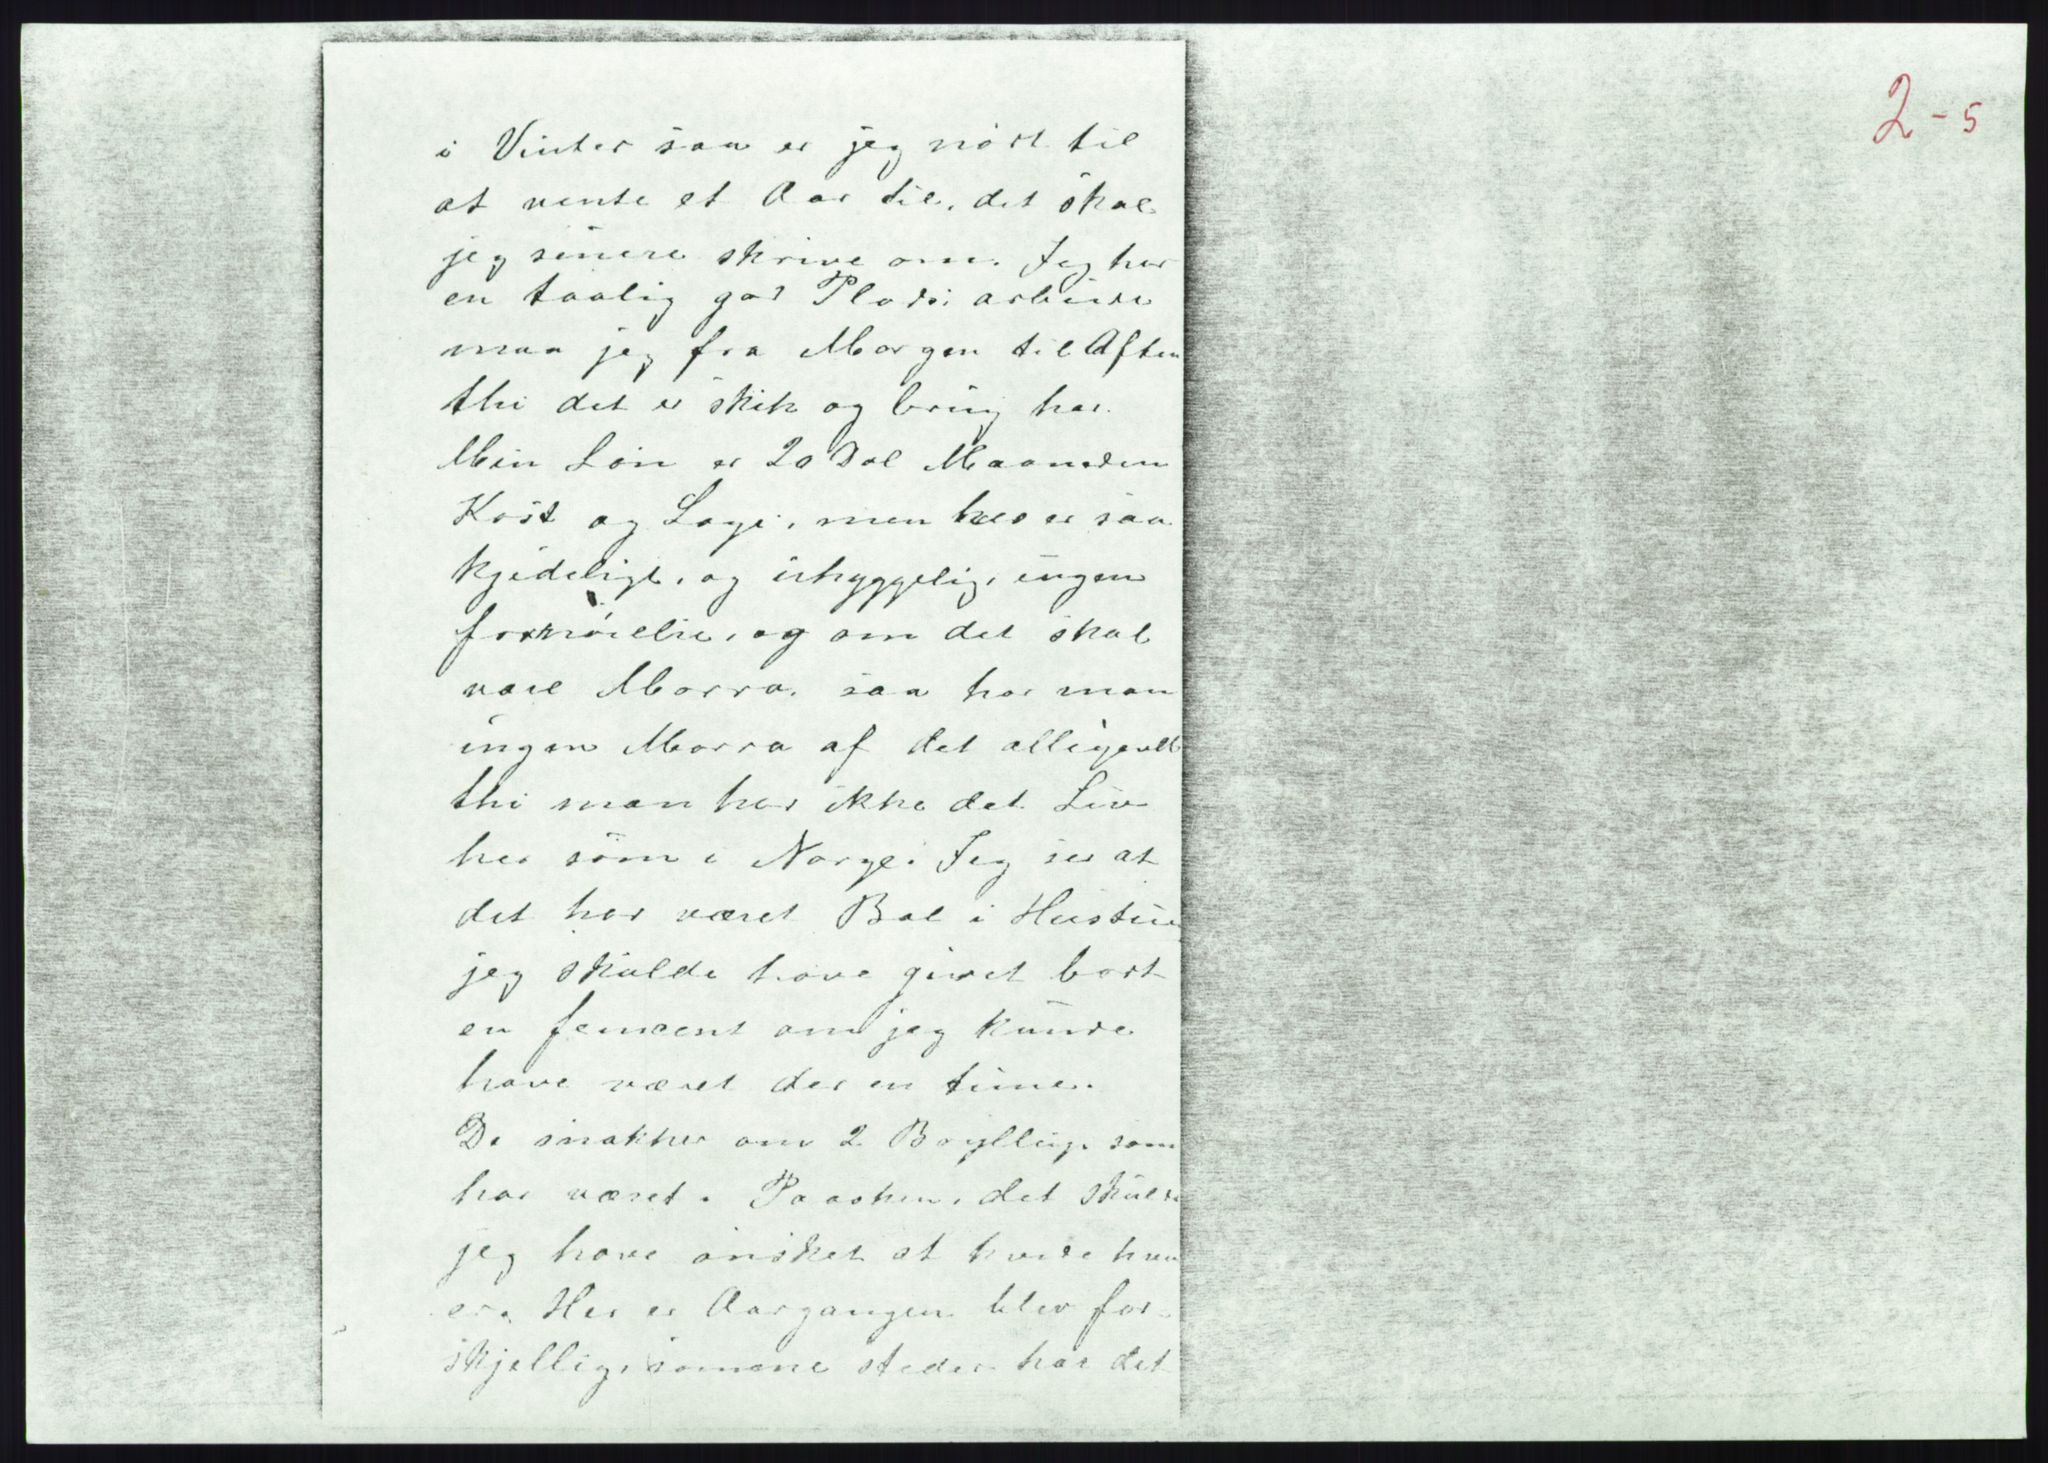 2-5
i Vinter saa er jeg nødt til
at vente et Aar til. det skal
jeg senere skrive om. Jeg har
en taalig god Plads. arbeide
maa jeg fra Morgen til Aften
thi det er skik og brug her.
Min Løn er 20 Dol Maaneden
Kost og Logi. men her er saa
kjedeligt. og uhyggelig. ingen
fornøielse. og om det skal
være Morro. saa har man
ingen Morro af det alligevell
thi man har ikke det Liv
her som i Norge. Jeg ser at
det har været Bal i
jeg skulde have givet bort
en femcent om jeg kunde
have været der en time.
De snakker om 2 Bryllup. som
har været. Paasken. det skulde
jeg have ønsket at hvide hvem
er. Her er Aargangen blev for-
skjellig. somene steder har det